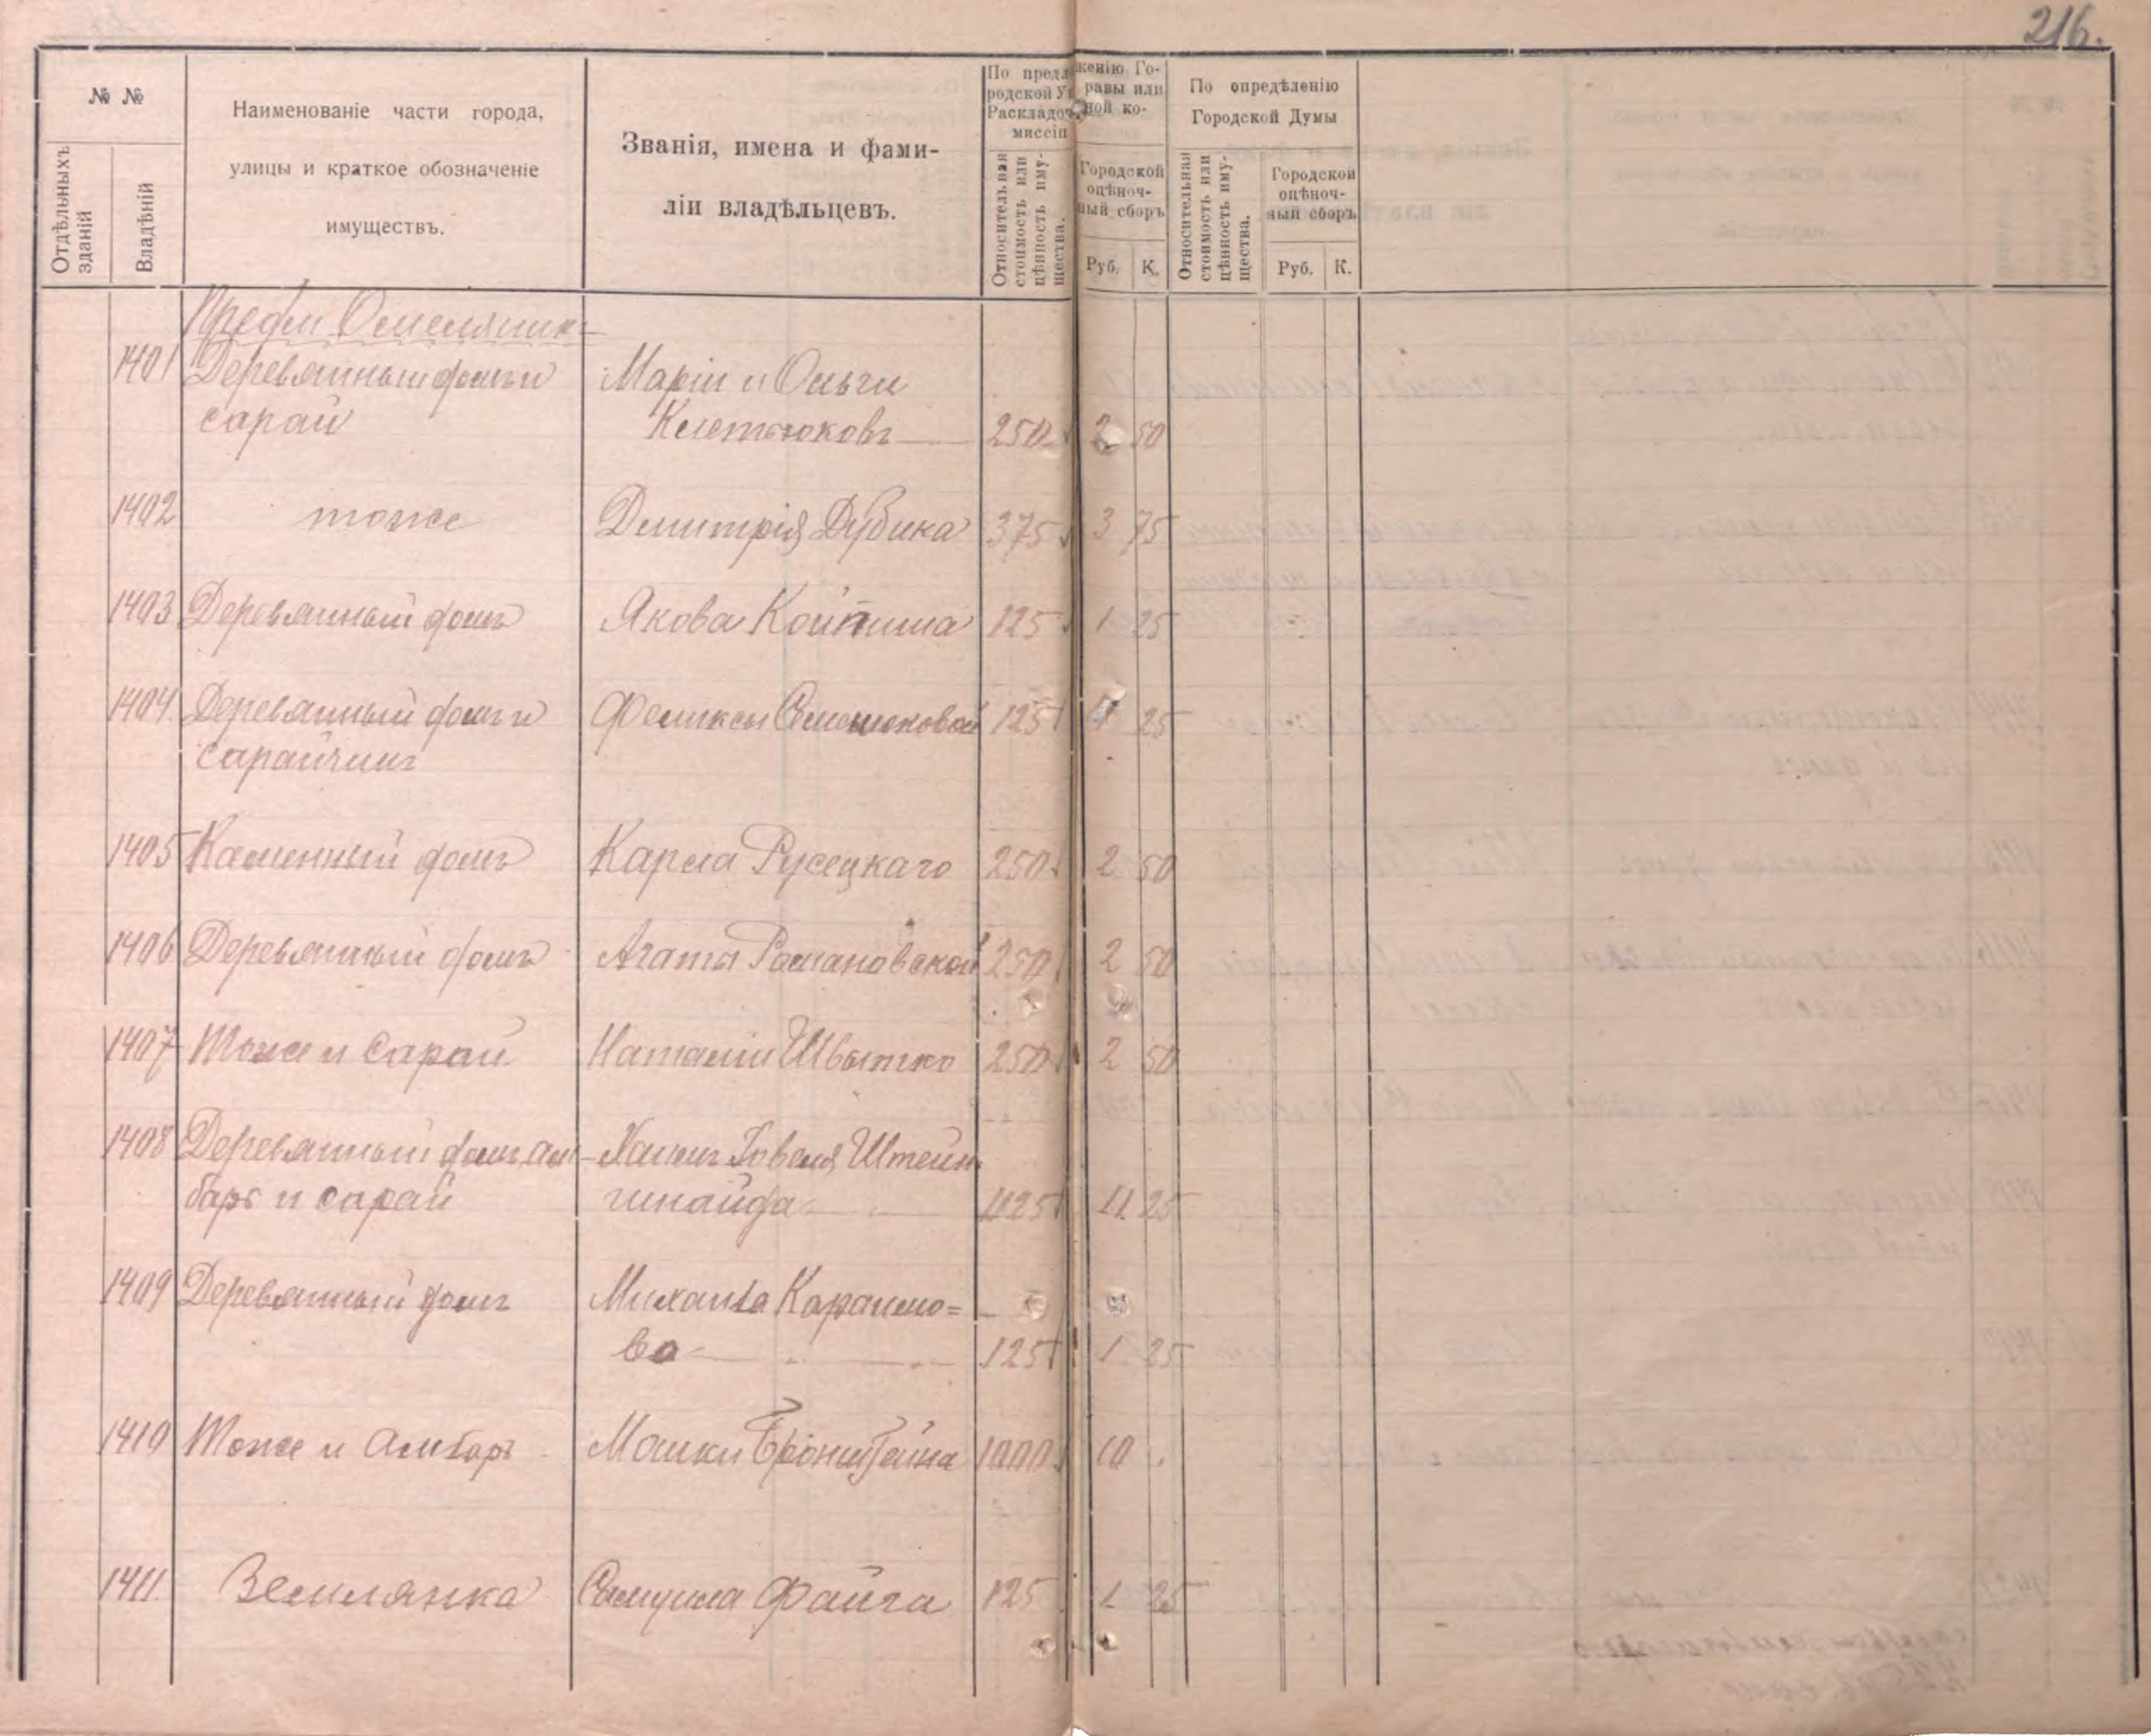 216.
№ №
Отдѣльныхъ зданій
Владѣній
Наименованіе части города,
улицы и краткое обозначеніе
имуществъ.
Званія, имена и фами-
ліи владѣльцевъ.
По предложенію Го-
родской Управы или
Раскладочной ко-
миссіи
Относительная стоимость или цѣнность иму-щества.
Городской
оцѣноч-
ный сборъ
Руб. К.
По опредѣленію
Городской Думы
Относительная стоимость или цѣнность иму-щества.
Городской
оцѣноч-
ный сборъ
Руб. К.
1401 Деревянный домъ и Маріи и Ольги
сарай 250 2 50
1402 тоже Дмитрія Дубина 375 3 75
1403 Деревянный домъ Якова 125 1 25
1404 Деревянный домъ и Феликсы 125 1 25
сарайчикъ
1405 Каменный домъ Карла Русецкаго 250 2 50
1406 Деревянный домъ Агаты Романовской 250 2 50
1407 Тоже и сарай Наталіи Швытко 250 2 50
1408 Деревянный домъ, ам- Штейн
баръ и сарай шнайда 1125 11 25
1409 Деревянный домъ Михаила Каранмо=
ва 125 1 25
1410 Тоже и Амбаръ Мошки Бронштейна 1000 10
1411 Землянка Самуила Файга 125 1 25